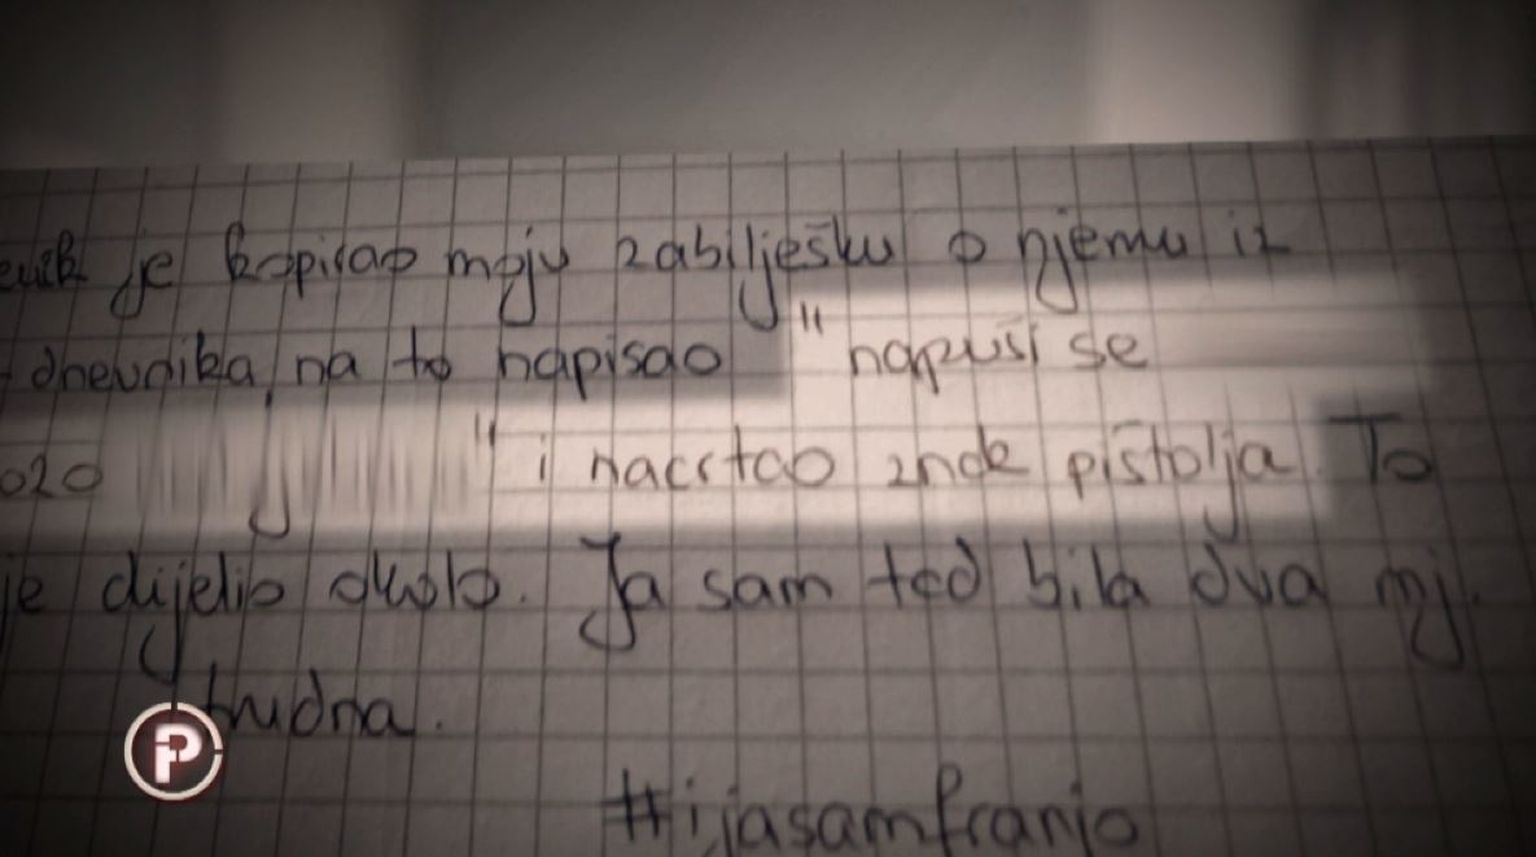 je kopirao moju zabilješku o njemu iz
dnevnika, na to napisao "napuši se
" i nacrtao znak pištolja. To
je dijelio okolo. Ja sam tad bila dva mj.
trudna.
#ijasamfranjo
P